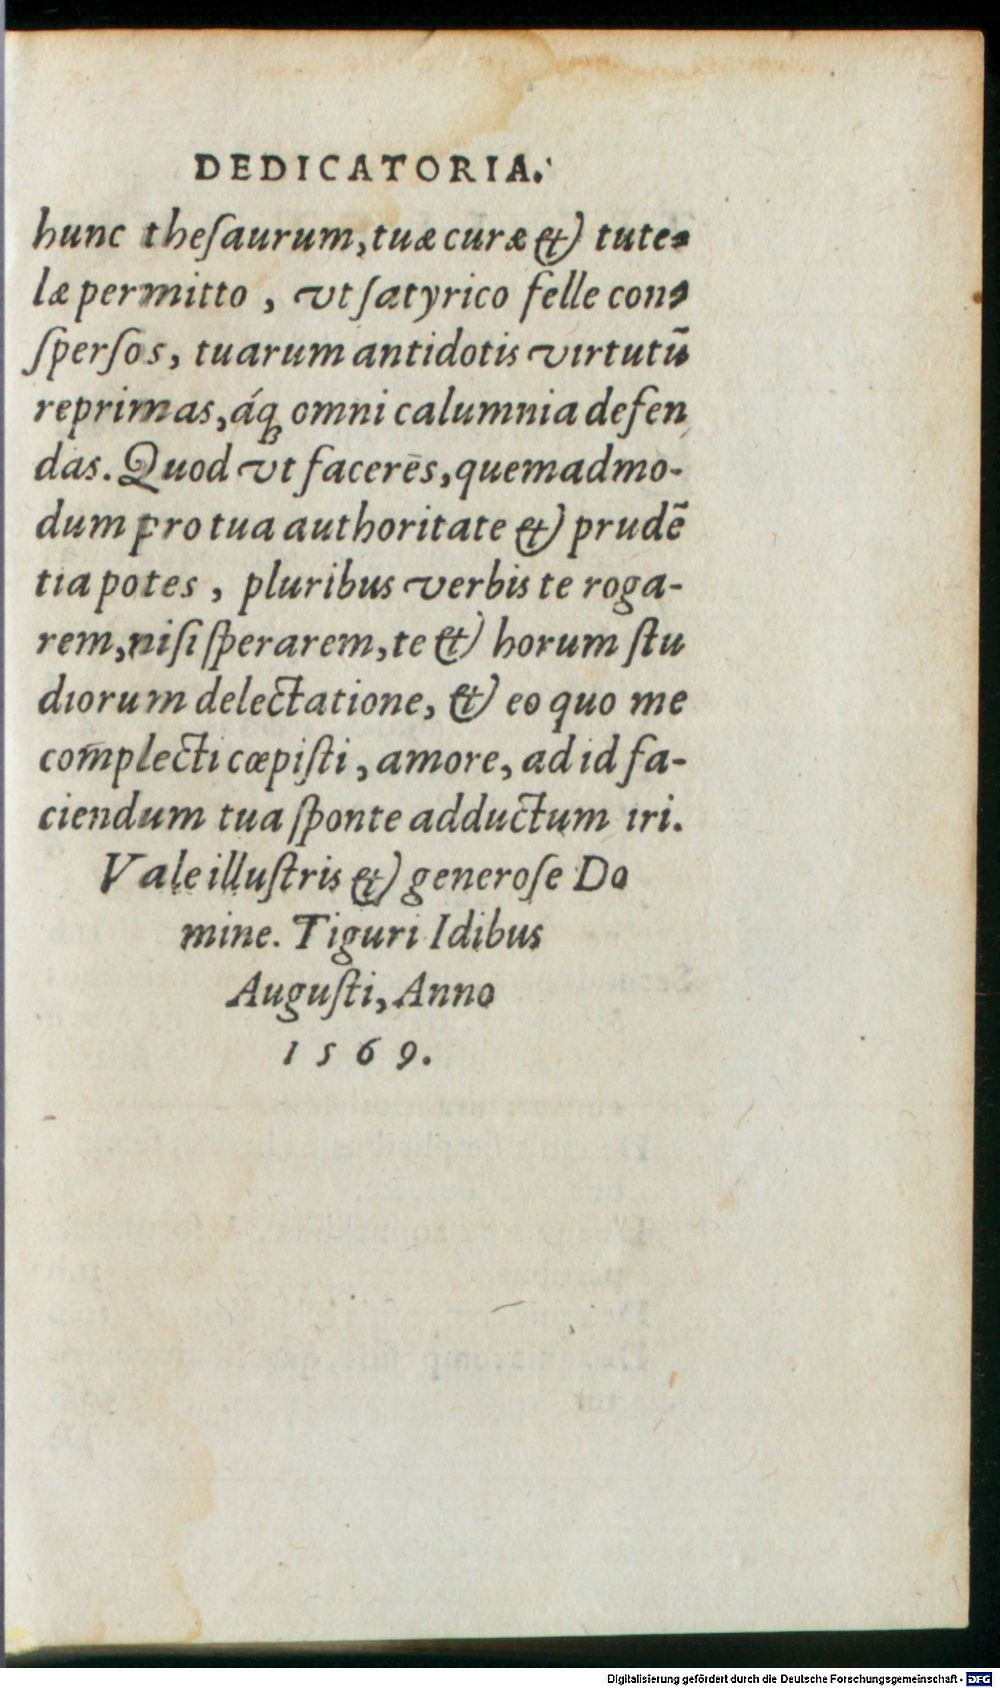 DEDICATORIA.
hunc theſaurum, tuæ curæ & tute-
læ permitto, vt ſatyrico felle con-
ſperſos, tuarum antidotis virtutū
reprimas, áq; omni calumnia defen
das. Quod vt facerēs, quemadmo-
dum pro tua authoritate & prudē
tia potes, pluribus verbis te roga-
rem, niſi ſperarem, te & horum ſtu
diorum delectatione, & eo quo me
com̄plecti cœpiſti, amore, ad id fa-
ciendum tua ſponte adductum iri.
Vale illuſtris & generoſe Do
mine. Tiguri Idibus
Auguſti, Anno
1569.
Digitalisierung gefördert durch die Deutsche Forschungsgemeinschaft - DFG